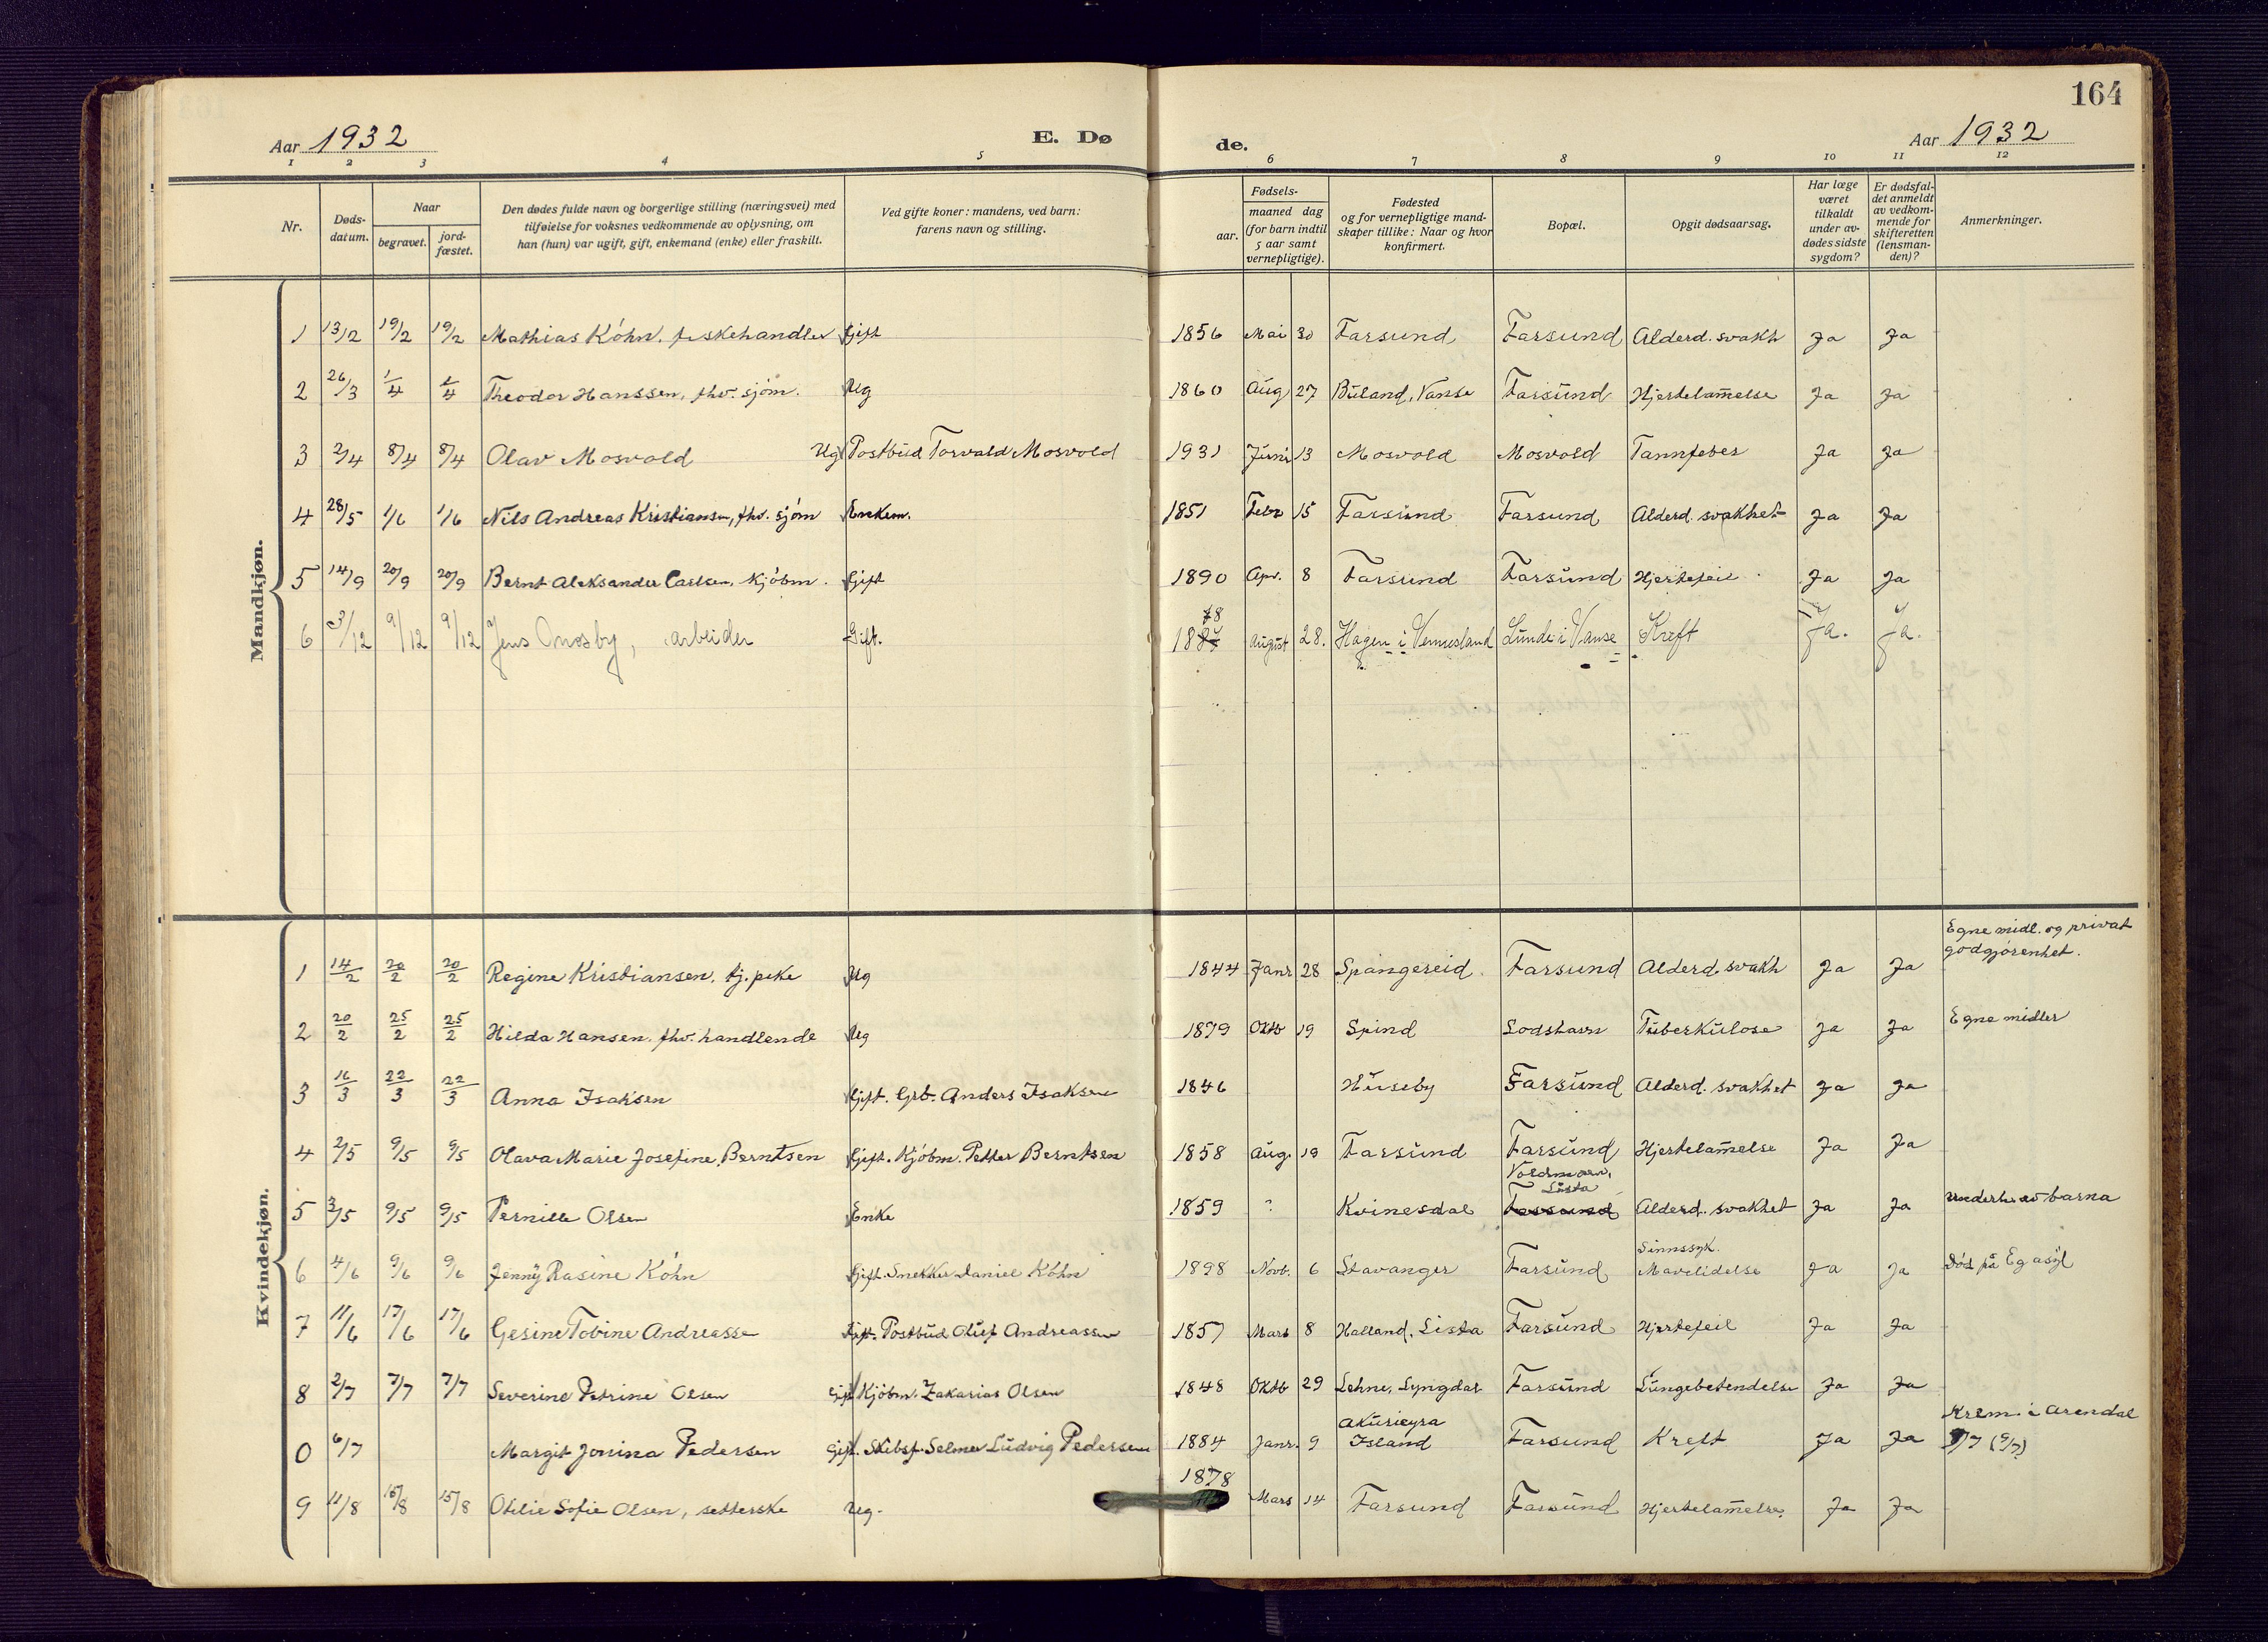 164
Aar 1932 E. Dø de. Aar 1932
1 2 3 4 5 6 7 8 9 10 11 12
Nr. Døds-datum. Naar begravet. jord-fæstet. Den dødes fulde navn og borgerlige stilling (næringsvei) med tilføielse for voksnes vedkommende av oplysning, om han (hun) var ugift, gift, enkemand (enke) eller fraskilt. Ved gifte koner: mandens, ved barn: farens navn og stilling. Fødsels- aar. maaned dag (for barn indtil 5 aar samt vernepligtige). Fødested og for vernepligtige mand-skaper tillike: Naar og hvor konfirmert. Bopæl. Opgit dødsaarsag. Har læge været tilkaldt under av-dødes sidste sygdom? Er dødsfal-det anmeldt av vedkom-mende for skifteretten (lensman-den)? Anmerkninger.
Mandkjøn.
1 13/2 19/2 19/2 Mathias Köhn. fiskehandler Gift 1856 Mai 30 Farsund Farsund Alderd. svakh Ja Ja
2 26/3 1/4 1/4 Theodor Hanssen, fhv. sjöm. Ug 1860 Aug 27 Buland, Vanse Farsund Hjertelammelse Ja Ja
3 2/4 8/4 8/4 Olav Mosvold Ug Postbud Torvald Mosvold 1931 Juni 13 Mosvold Mosvold Tannfeber Ja Ja
4 28/5 1/6 1/6 Nils Andreas Kristiansen, fhv. sjöm Enkem. 1851 Febr 15 Farsund Farsund Alderd. svakhet Ja Ja
5 14/9 20/9 20/9 Bernt Aleksander Carlsen, Kjöbm. Gift 1890 Apr. 8 Farsund Farsund Hjertefeil Ja Ja
6 3/12 9/12 9/12 Jens Omosby, arbeider Gift. 1878 August 28. Hagen i Vennesland Lunde i Vanse Kreft Ja. Ja.
Kvindekjøn.
1 14/2 20/2 20/2 Regine Kristiansen, tj. pike Ug 1844 Janr 28 Spangereid Farsund Alderd. svakh Ja Ja Egne midl. og privat godgjörenhet.
2 20/2 25/2 25/2 Hilda Hansen. fhv. handlende Ug 1879 Oktb 19 Spind Lodshavn Tuberkulose Ja Ja Egne midler
3 16/3 22/3 22/3 Anna Isaksen Gift. Grb. Anders Isaksen 1846 Huseby Farsund Alderd. svakhet Ja Ja
4 2/5 9/5 9/5 Olava Marie Josefine Berntsen Gift. Kjöbm. Petter Berntsen 1858 Aug. 19 Farsund Farsund Hjertelammelse Ja Ja
5 3/5 9/5 9/5 Pernille Olsen Enke 1859 ? Kvinesdal Lista Farsund Alderd. svakhet Ja Ja underh. av barna
6 4/6 9/6 9/6 Jenny Rasine Köhn Gift. Snekker Daniel Köhn 1898 Novb. 6 Stavanger Farsund Sinnssyk. Mavelidelse Ja Ja Död på Eg asyl
7 11/6 17/6 17/6 Gesine Tobine Andreasse Gift. Postbud Oluf Andreassen 1857 Mars 8 Halland, Lista Farsund Hjertefeil Ja Ja
8 2/7 7/7 7/7 Severine Petrine Olsen Gift Kjöbm. Zakarias Olsen 1848 Oktb 29 Lehne, Lyngdal Farsund Lungebetendelse Ja Ja
0 6/7 Margit Jonina Pedersen Gift. Skibsf. Selmer Ludvig Pedersen 1884 Janr. 9 Akurieyra Island Farsund Kreft Ja Ja Krem. i Arendal (9/7)
9 11/8 15/8 15/8 Otilie Sofie Olsen, setterske Ug. 1878 Mars 14 Farsund Farsund Hjertelammelse Ja Ja